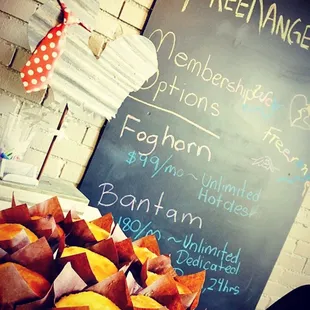 FREE RANGE
Membership
Options
Foghorn
$99/mo ~ Unlimited
Hotdesk
Bantam
180/mo ~ Unlimited
Dedicated
24hrs